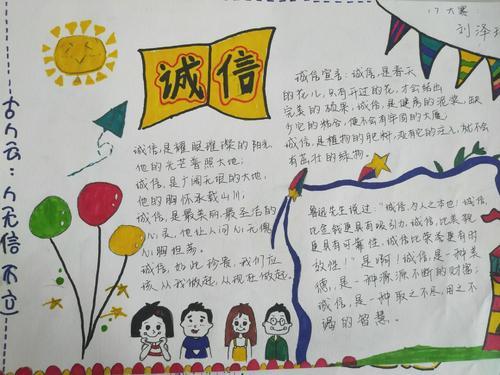 17大寨
刘泽
诚信
古人云：人无信不立
诚信，是耀眼璀璨的阳光，
他的光芒普照大地；
诚信，是广阔无垠的大地，
他的胸怀承载山川；
诚信，是最美丽、最圣洁的
心灵，他让人问心无愧，
心胸坦荡。
诚信，如此珍贵，我们应
该从我做起，从现在做起。
诚信宣言：诚信，是春天
的花儿，只有开过的花，才会结出
完美的硕果，诚信，是健房的泥浆，缺
少它的粘合，便不会有牢固的大厦。
诚信，是植物的肥料，没有它的注入，就不会
有茁壮的绿物。
鲁迅先生说过："诚信，为人之本也！诚信，
比金钱更具有吸引力，诚信，比美貌
更具有可靠性，诚信比荣誉更有时
效性！"是啊！诚信，是一种美
德，是一种源源不断的财富；
诚信，是一种取之不尽，用之不
竭的智慧。